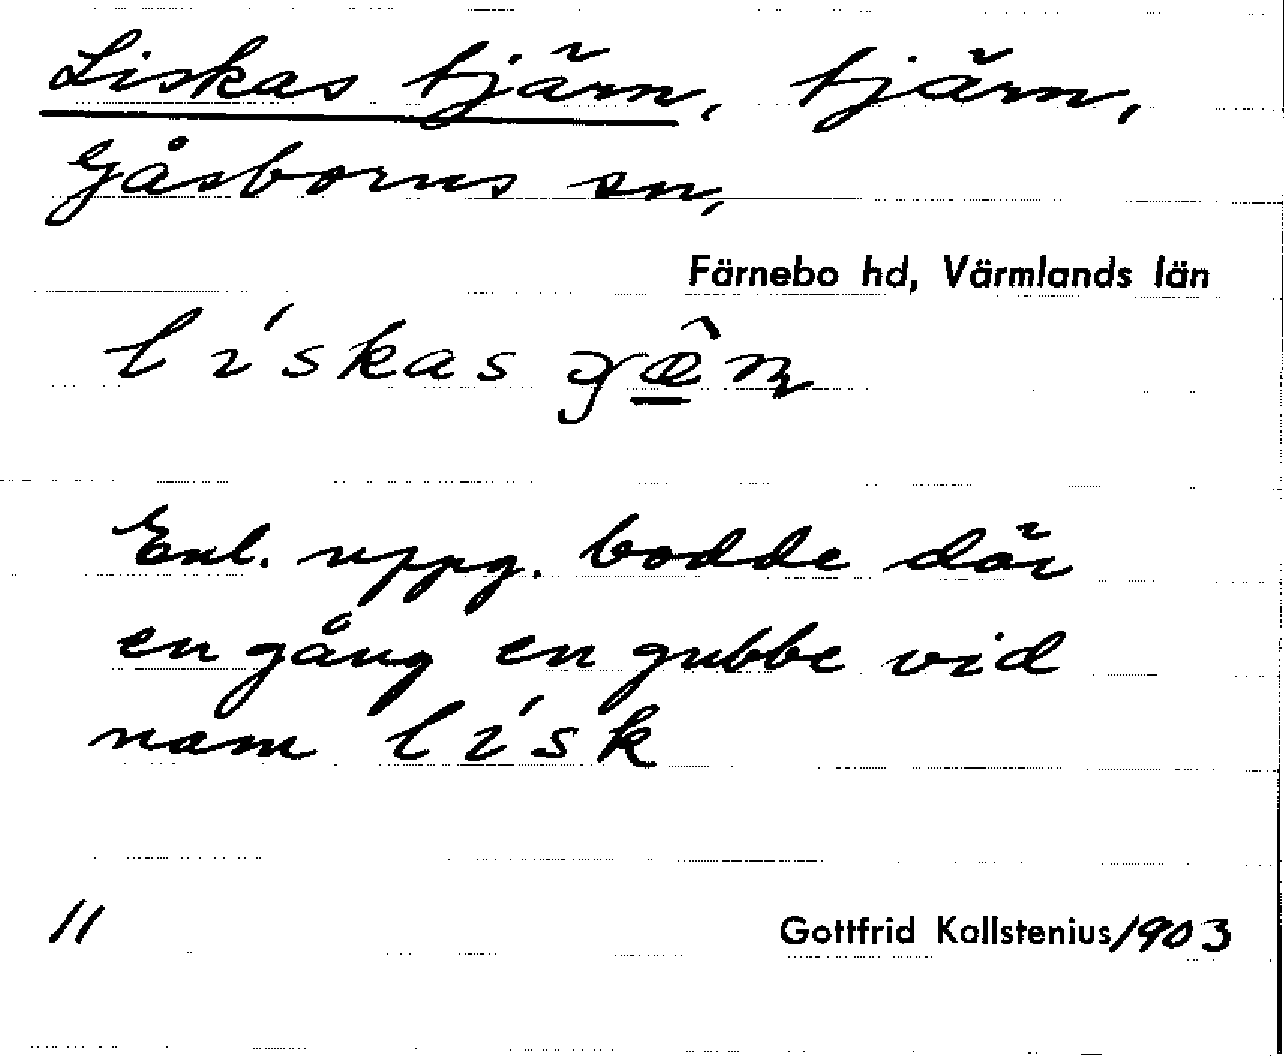 Liskas tjärn, tjärn,
Gåsborns sn,
Färnebo hd, Värmlands län
lískas
Enl. uppg. bodde där
en gång en gubbe vid
namn lísk
11
Gottfrid Kallstenius/1903